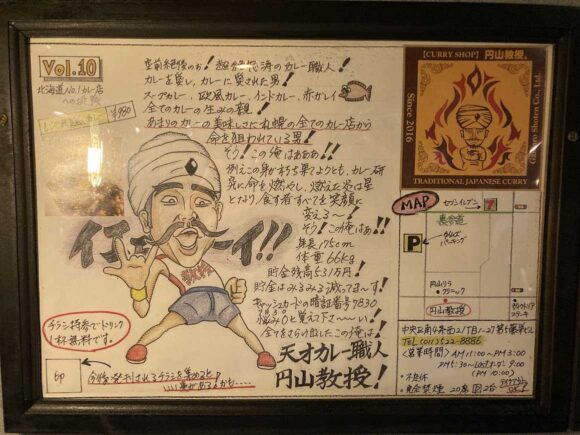 Vol.10
北海道No.1カレー店
への挑戦
¥980
空前絶後のぉ！超絶怒涛のカレー職人！
カレーを愛し、カレーに愛された男！
スープカレー、欧風カレー、インドカレー、赤カレイ
全てのカレーの生みの親！
あまりのカレーの美味しさに札幌の全てのカレー店から
命を狙われている男！
そう！この俺はぁぁぁ！！
例えこの身が朽ち果てようとも、カレー研
究に命を燃やし、燃えた炎は星
となり、食す者すべてを笑顔に
変える〜！
そう！この俺はぁ！！
身長175cm
体重66kg
貯金残高531万円！
貯金はみるみる減ってまーす！
キャッシュカードの暗証番号7830
悩み0と覚えて下さ〜い！
全てをさらけ出したこの俺は！
天才カレー職人
円山教授！
イェーイ！！
教授
チラシ持参でドリンク
1杯無料です。
6p
今後発刊されるチラシを集めると
いい事があるかも....
【CURRY SHOP】 円山教授。
Since 2016
Co., Ltd.
TRADITIONAL JAPANESE CURRY
MAP
セブンイレブン
7
裏参道
P
タイムズ
パーキング
円山リラ
クリニック
円山教授
ステーキ
中央区南4条西21丁目1-27第5藤栄ビル
TEL(011)522-8886
〈営業時間〉AM11:00〜PM3:00
PM5:30〜ラストオーダー9:00
(PM10:00)
・不定休
・完全禁煙 20席 P2台
テイクアウト
OK！